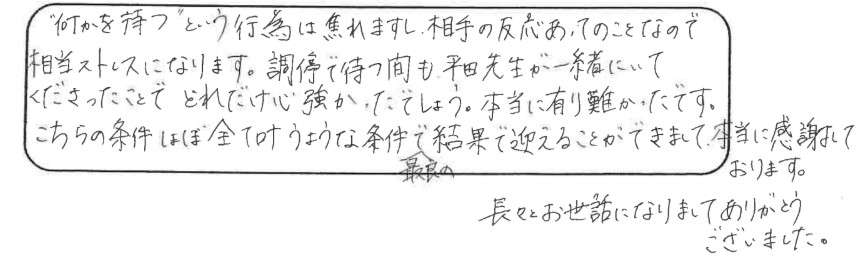 "何かを待つ"という行為は焦れますし、相手の反応あってのことなので
相当ストレスになります。調停で待つ間も平田先生が一緒にいて
くださったことで どれだけ心強かったでしょう。本当に有り難かったです。
こちらの条件ほぼ全て叶うような条件で最良の結果で迎えることができまして、本当に感謝して
おります。
長々とお世話になりましてありがとう
ございました。